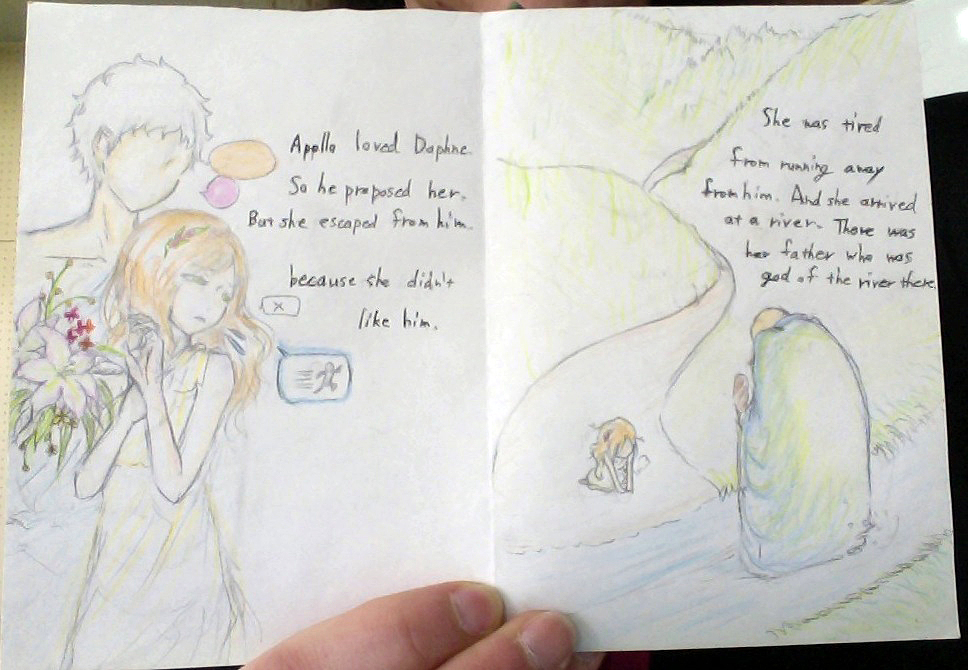 Apollo loved Daphne.
So he proposed her.
But she escaped from him.
because she didn't
like him.
She was tired
from running away
from him. And she arrived
at a river. There was
her father who was
god of the river there.